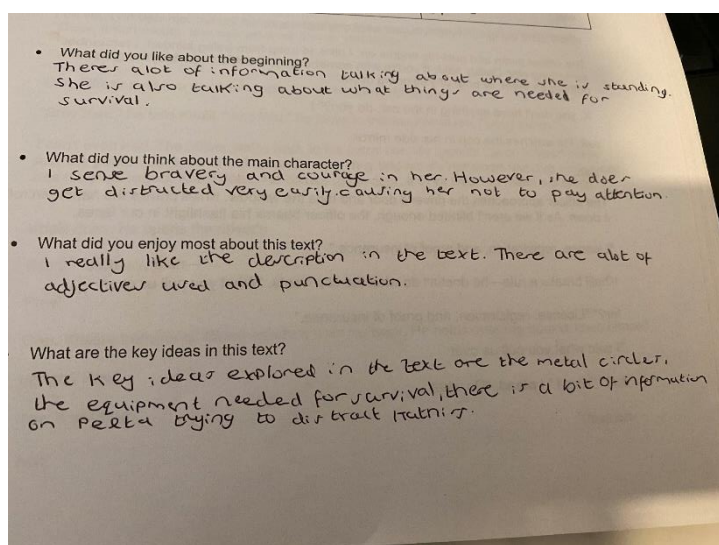 • What did you like about the beginning?
Theres alot of information talking about where she is standing.
She is also talking about what things are needed for
survival.
• What did you think about the main character?
I sense bravery and courage in her. However, she does
get distracted very easily causing her not to pay attention.
• What did you enjoy most about this text?
I really like the description in the text. There are alot of
adjectives used and punctuation.
What are the key ideas in this text?
The key ideas explored in the text are the metal circles,
the equipment needed for survival, there is a bit of information
on Peeta trying to distract Katniss.